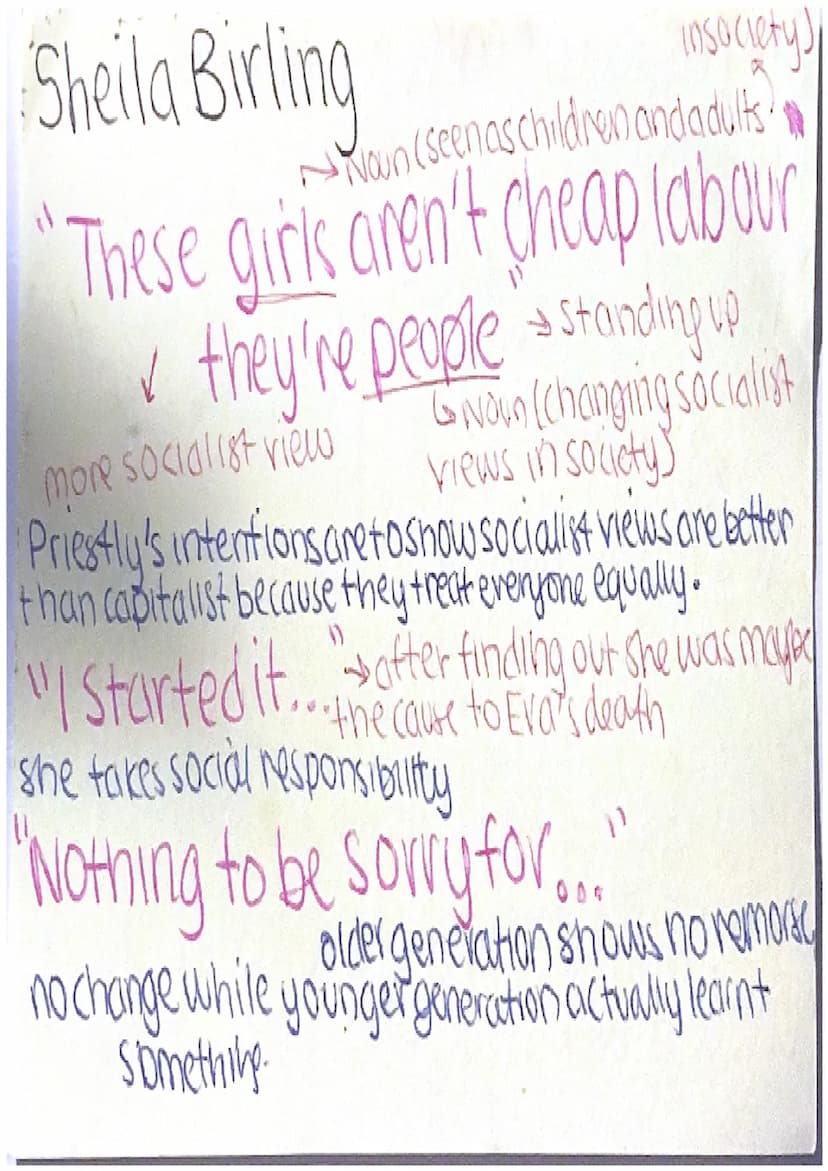 Sheila Birling
in society)
Noun (seen as children and adults
"These girls aren't cheap labour"
they're people" → standing up
↳ Noun (changing socialist
more socialist view
views in society)
Priestly's intentions are to show socialist views are better
than capitalist because they treat everyone equally.
"I started it..." → after finding out she was maybe
the cause to Eva's death
she takes social responsibility
"Nothing to be sorry for..."
older generation shows no remorse
no change while younger generation actually learnt
something.